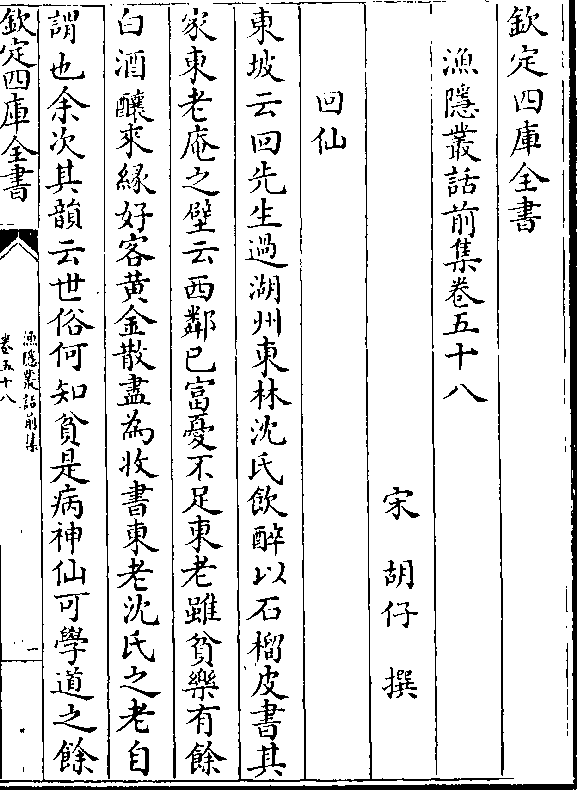 欽定四庫全書
漁隱叢話前集卷五十八
宋　胡仔　撰
回仙
東坡云回先生過湖州東林沈氏飲醉以石榴皮書其
家東老庵之壁云西鄰已富憂不足東老雖貧樂有餘
白酒釀來緣好客黄金散盡為收書東老沈氏之老自
謂也余次其韻云世俗何知貧是病神仙可學道之餘
欽定四庫全書
漁隱叢話前集
卷五十八
一